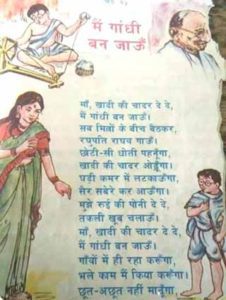 मैं गांधी
बन जाऊँ
माँ, खादी की चादर दे दे,
मैं गांधी बन जाऊँ।
सब मित्रों के बीच बैठकर,
रघुपति राघव गाऊँ।
छोटी-सी धोती पहनूँगा,
खादी की चादर ओढूँगा।
घड़ी कमर में लटकाऊँगा,
सैर सबेरे कर आऊँगा।
मुझे रूई की पोनी दे दे,
तकली खूब चलाऊँ।
माँ, खादी की चादर दे दे,
मैं गांधी बन जाऊँ।
गाँवों में ही रहा करूँगा,
भले काम मैं किया करूँगा।
छूत-अछूत नहीं मानूँगा,